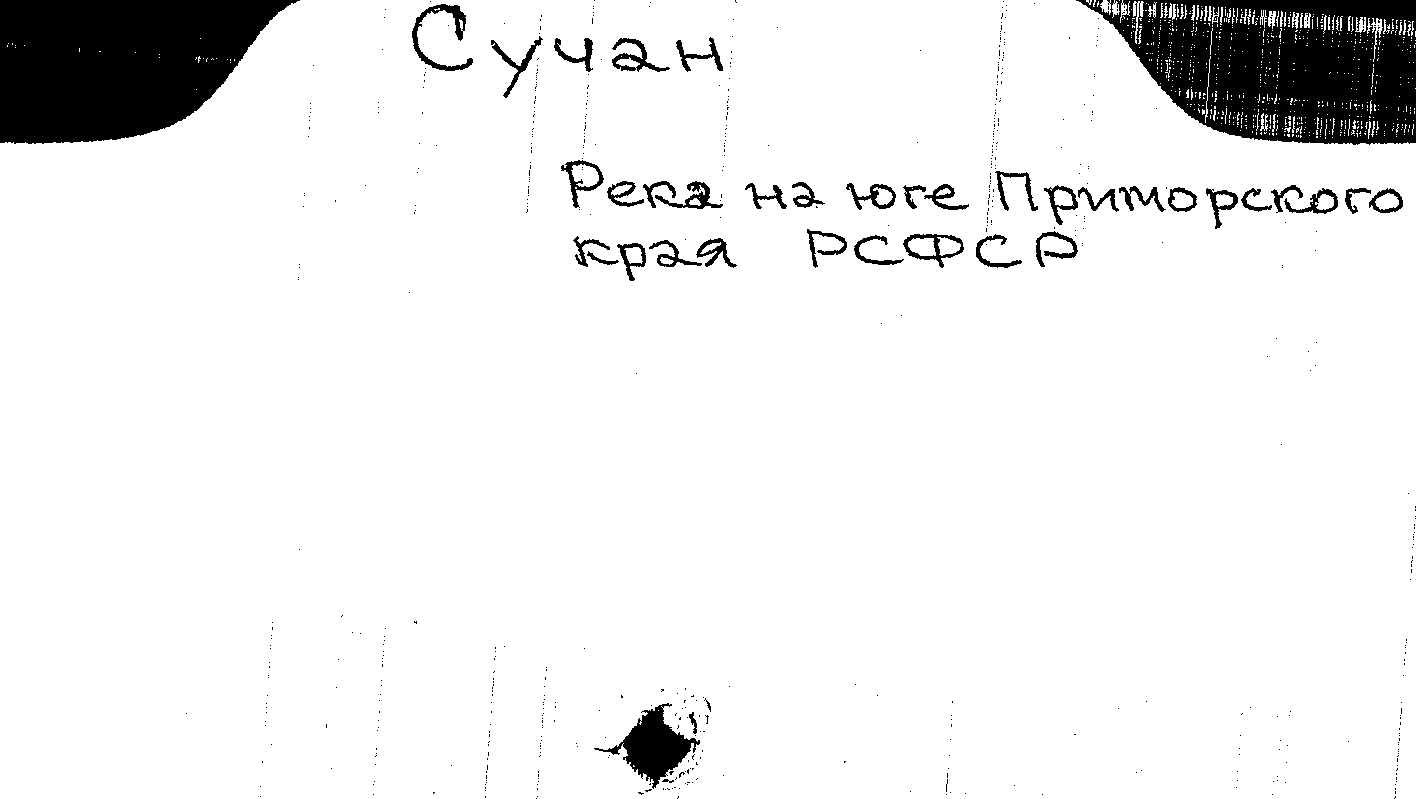 Сучан
Река на юге Приморского
края РСФСР